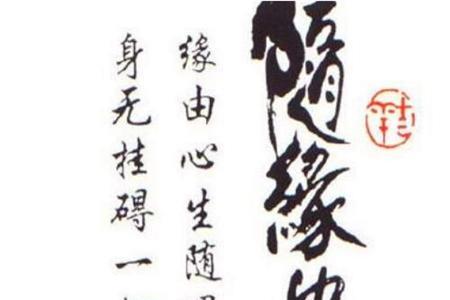 隨緣
缘由心生随
身无挂碍一